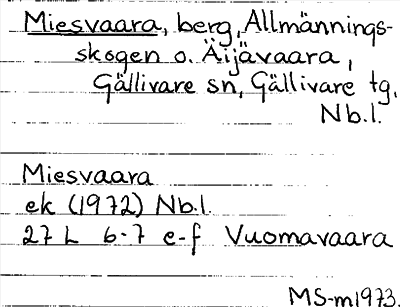 Miesvaara, berg, Allmännings-
skogen o. Äijävaara,
Gällivare sn, Gällivare tg,
Nb.l.
Miesvaara
ek (1972) Nb.l.
27 L 6-7 e-f Vuomavaara
MS-m1973.